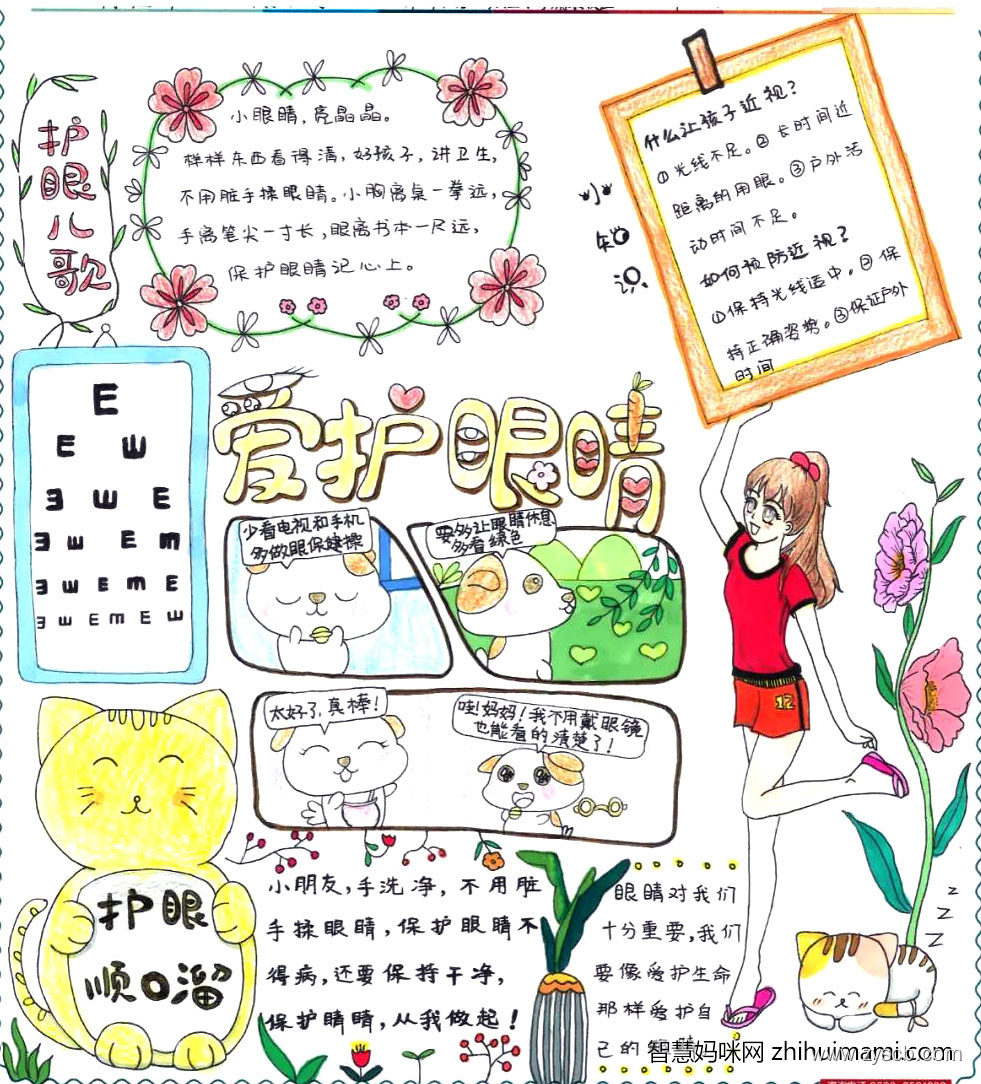 护眼儿歌
小眼睛,亮晶晶。
样样东西看得清,好孩子,讲卫生,
不用脏手揉眼睛。小胸离桌一拳远,
手离笔尖一寸长,眼离书本一尺远,
保护眼睛记心上。
小知识
什么让孩子近视?
①光线不足。②长时间近
距离的用眼。③户外活
动时间不足。
如何预防近视?
①保持光线适中。②保
持正确姿势。③保证户外
时间
E
E W
E W E
E W E M
E W E M E
E W E M E W
爱护眼睛
少看电视和手机
多做眼保健操
要多让眼睛休息
多看绿色
太好了,真棒!
哇!妈妈!我不用戴眼镜
也能看的清楚了!
12
护眼
顺口溜
小朋友,手洗净,不用脏
手揉眼睛,保护眼睛不
得病,还要保持干净,
保护睛睛,从我做起!
眼睛对我们
十分重要,我们
要像爱护生命
那样爱护自
己的
z
z
z
智慧妈咪网 zhihuimami.com